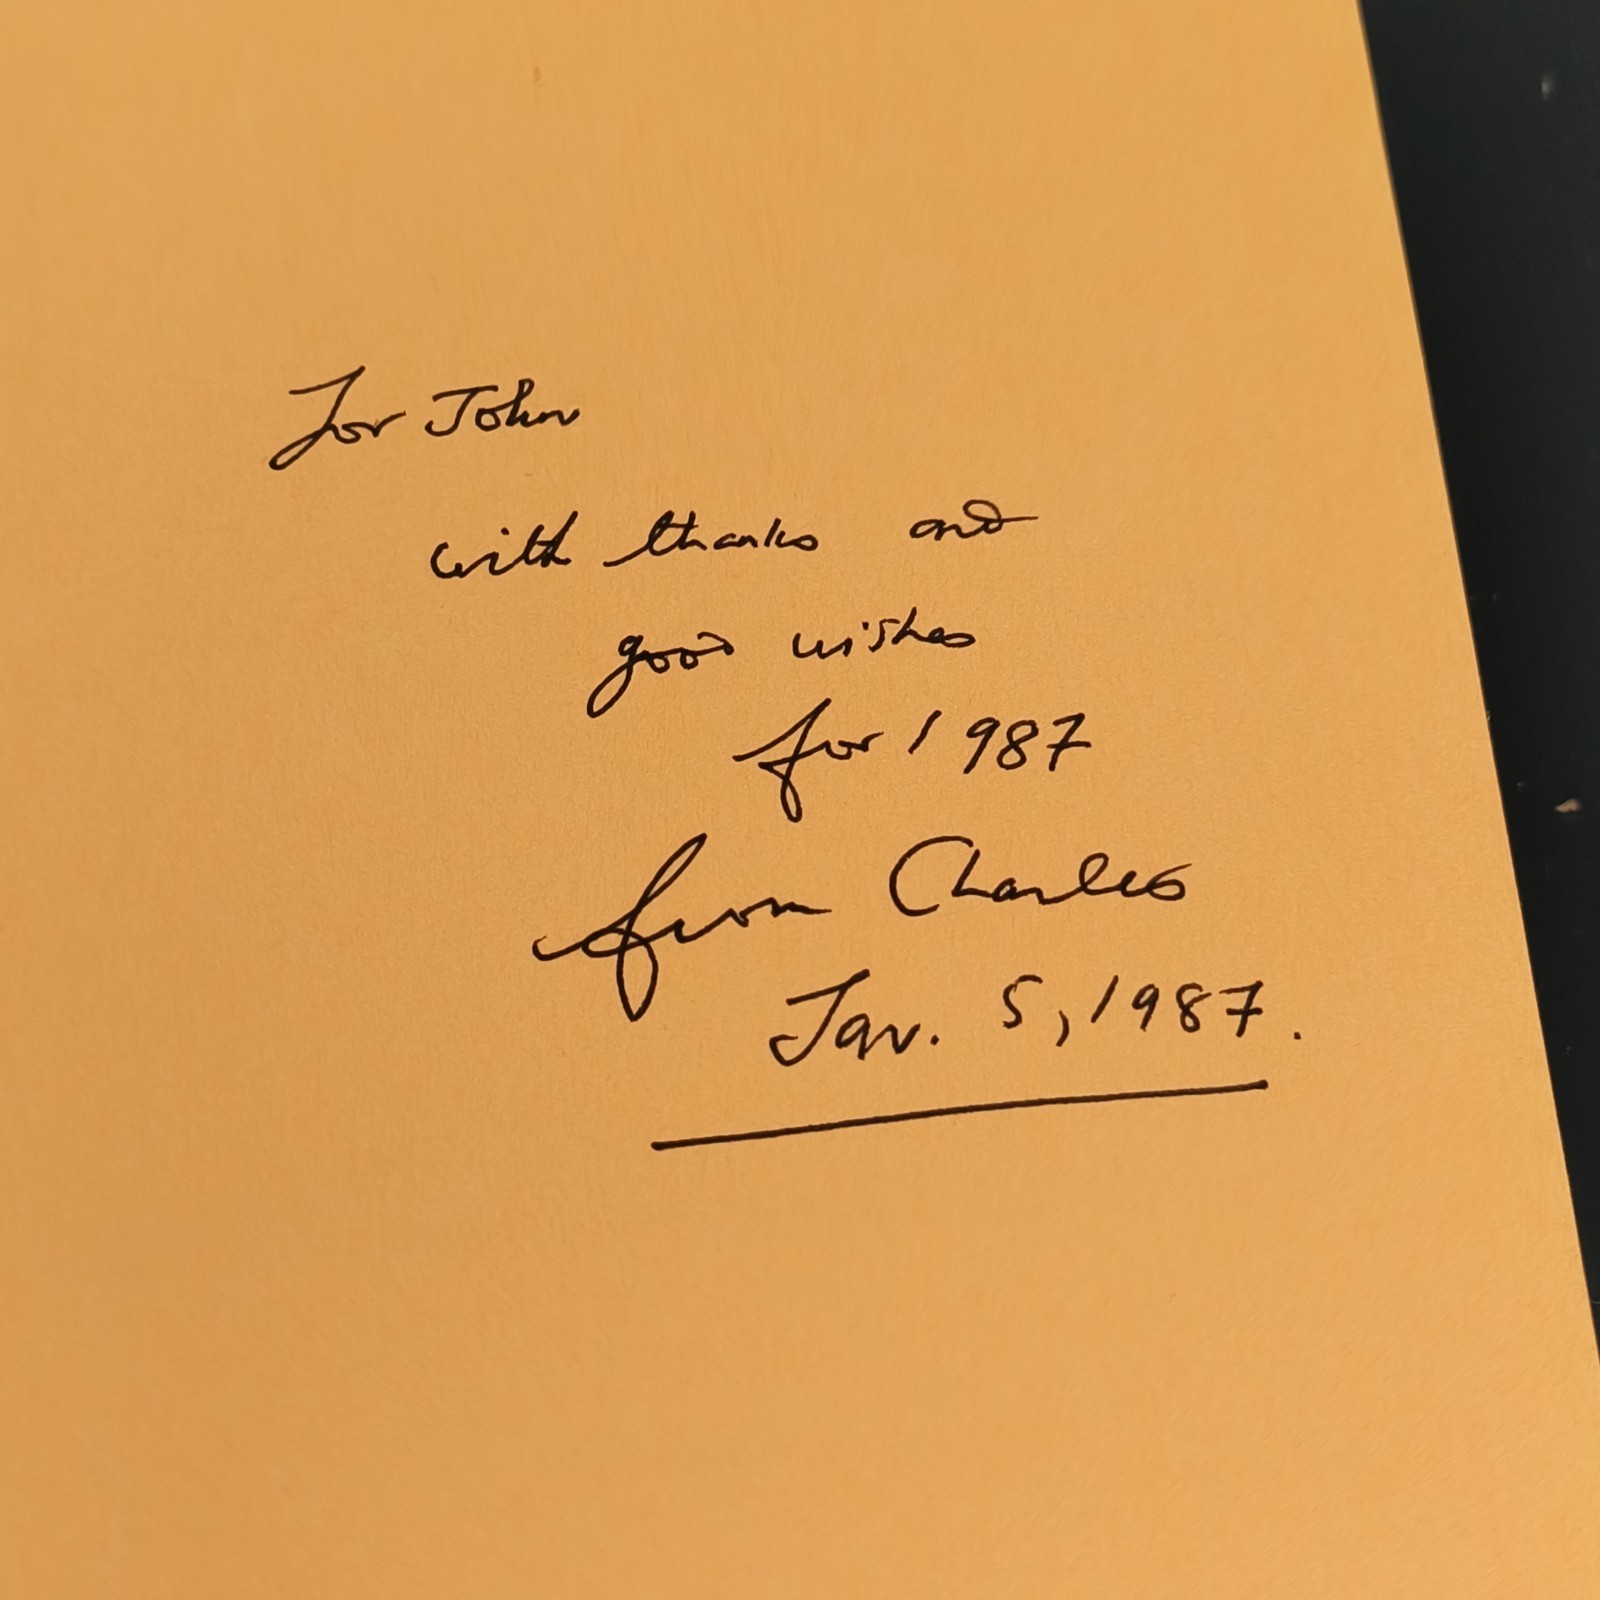 For John
with thanks and
good wishes
for 1987
from Charles
Jan. 5, 1987.